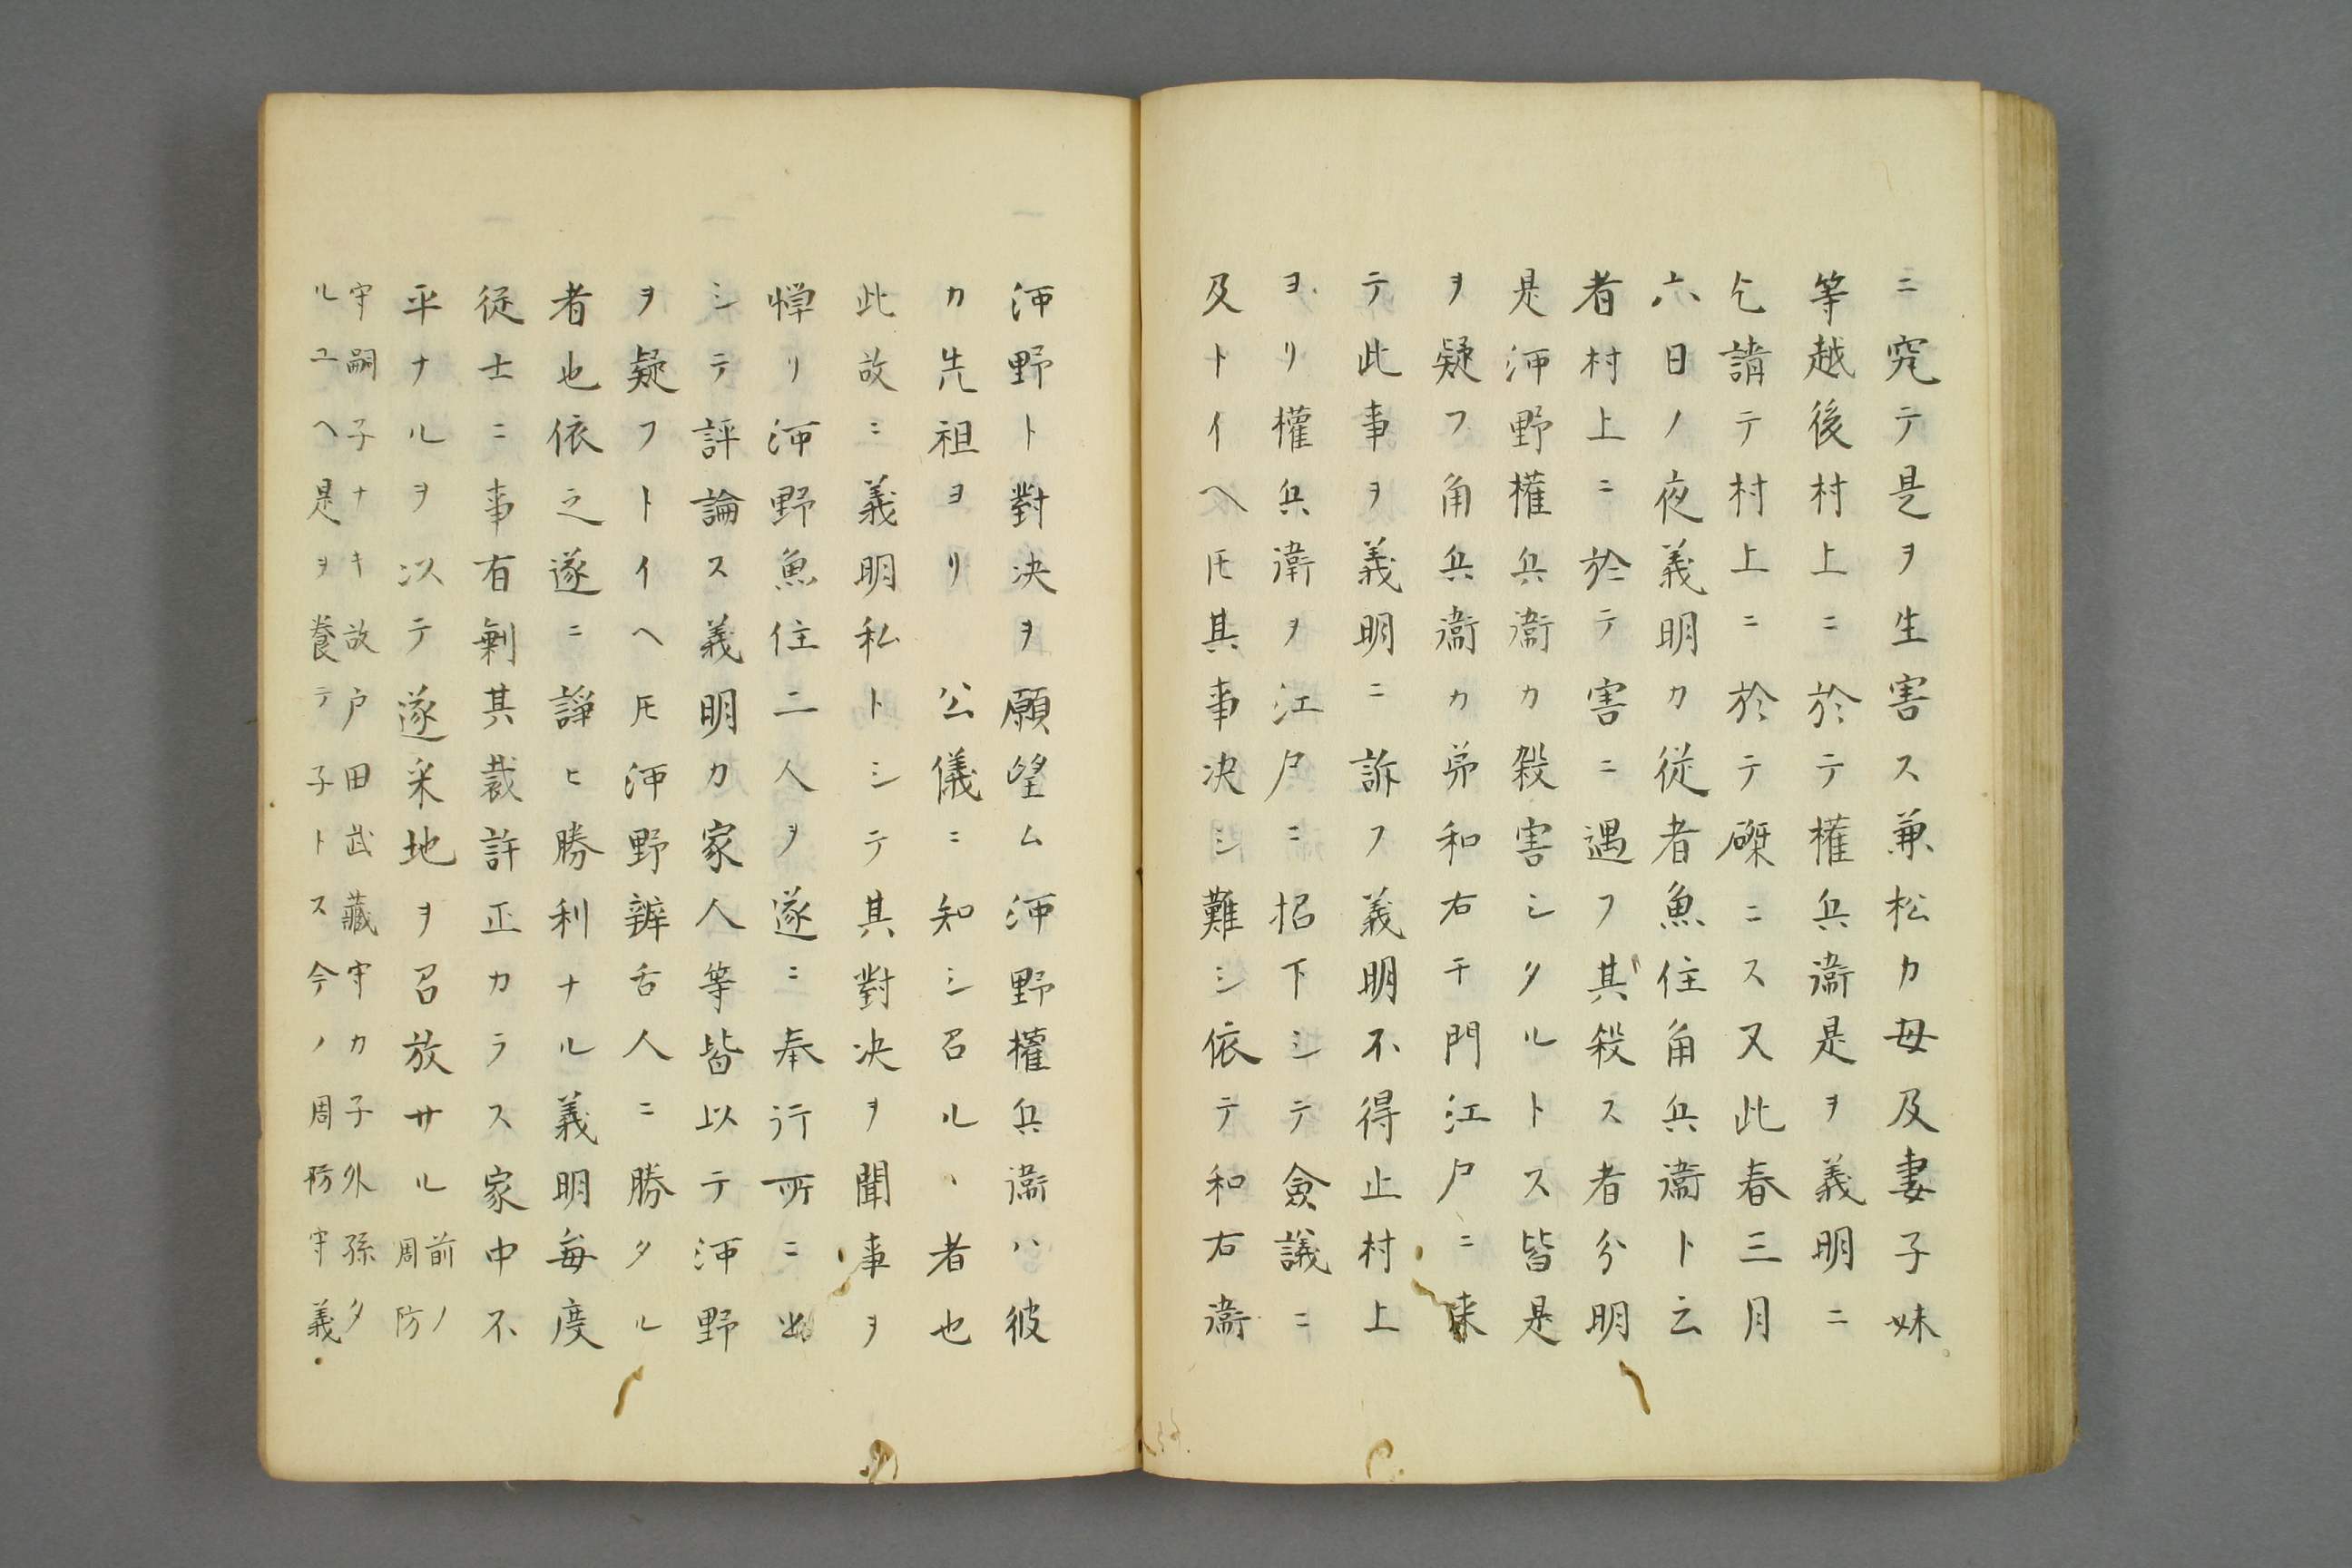 ニ究テ是ヲ生害ス兼松カ母及妻子妹
等越後村上ニ於テ權兵衞是ヲ義明ニ
乞請テ村上ニ於テ磔ニス又此春三月
六日ノ夜義明カ従者魚住角兵衞ト云
者村上ニ於テ害ニ遇フ其殺ス者分明
是沔野權兵衞カ殺害シタルトス皆是
ヲ疑フ角兵衞カ弟和右干門江戸ニ来
テ此事ヲ義明ニ訴フ義明不得止村上
ヨリ權兵衞ヲ江戸ニ招下シテ僉議ニ
及トイヘ𪜈其事决シ難シ依テ和右衞
沔野ト對决ヲ願望ム沔野權兵衞ハ彼
カ先祖ヨリ公儀ニ知シ召ルヽ者也
此故ニ義明私トシテ其對决ヲ聞事ヲ
憚リ沔野魚住二人ヲ遂ニ奉行所ニ出
シテ評論ス義明カ家人等皆以テ沔野
ヲ疑フトイヘ𪜈沔野辨舌人ニ勝タル
者也依之遂ニ諍ヒ勝利ナル義明毎度
従士ニ事有剰其裁許正カラス家中不
平ナルヲ以テ遂采地ヲ召放サル前ノ周防
守嗣子ナキ故戸田武藏守カ子外孫タ
ルユヘ是ヲ養テ子トス今ノ周防守義